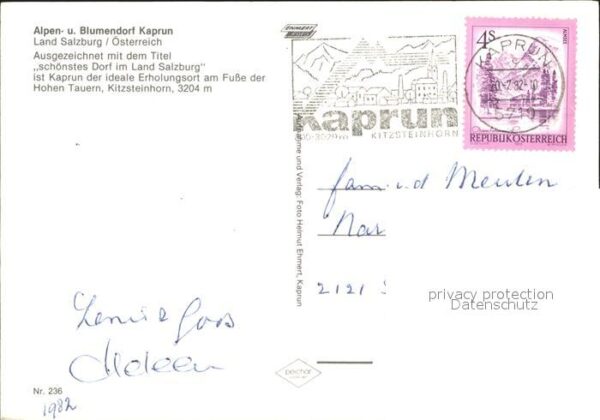 Alpen- u. Blumendorf Kaprun
Land Salzburg / Österreich
Ausgezeichnet mit dem Titel
„schönstes Dorf im Land Salzburg"
ist Kaprun der ideale Erholungsort am Fuße der
Hohen Tauern, Kitzsteinhorn, 3204 m
Kaprun
KITZSTEINHORN
KAPRUN
5710
4S
REPUBLIK ÖSTERREICH
Aufnahme und Verlag: Foto Helmut Ehmert, Kaprun
2121
privacy protection
Datenschutz
Nr. 236
1982